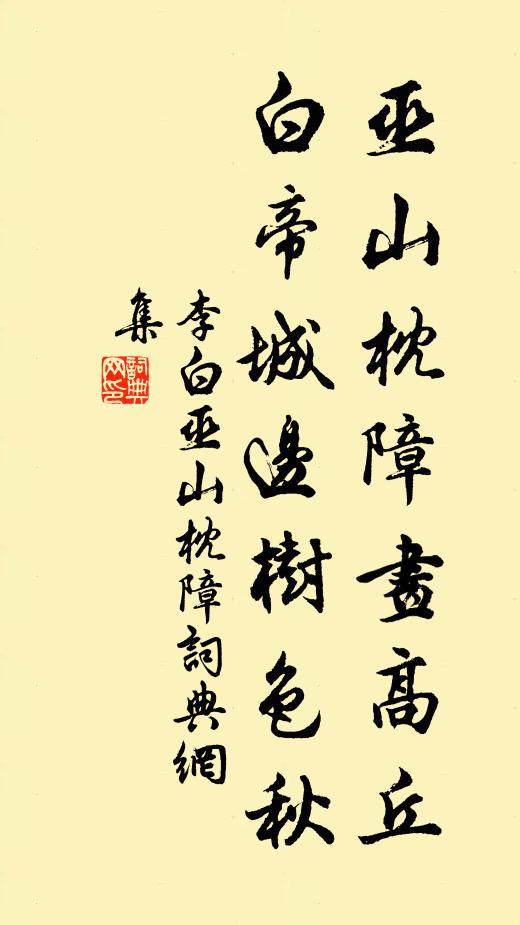 巫山枕障畫高丘
白帝城邊樹色秋
李白巫山枕障詞典網
集
詞典
網印